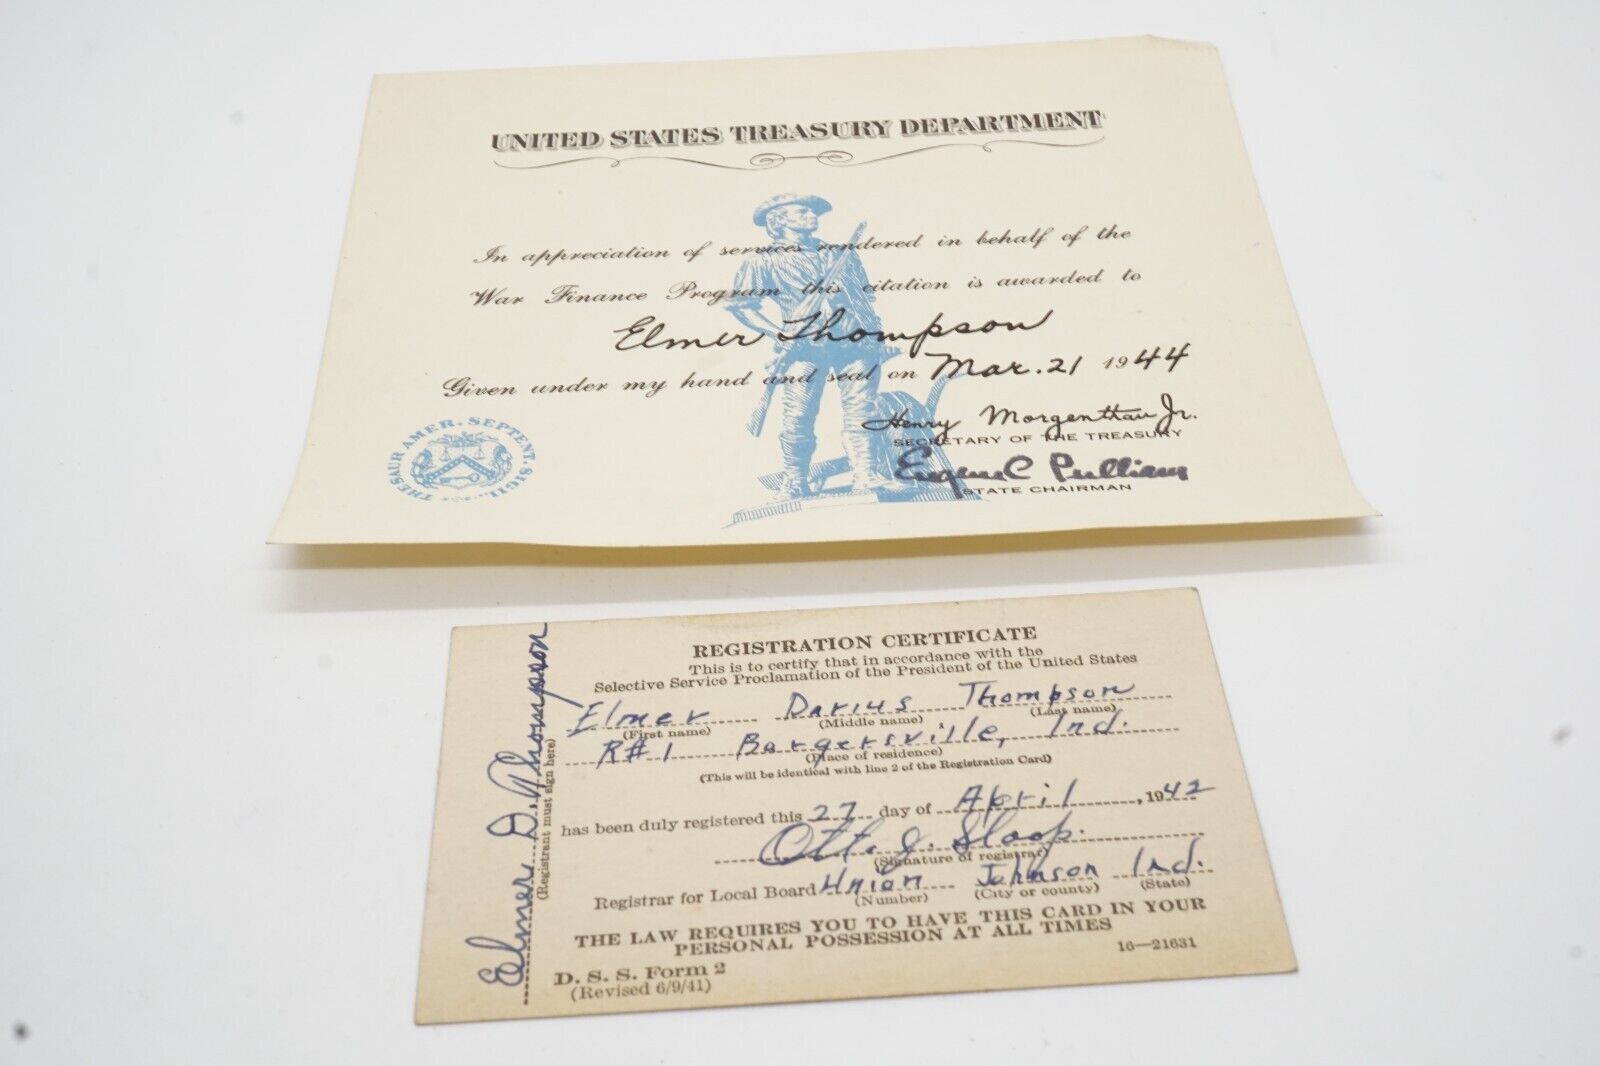 UNITED STATES TREASURY DEPARTMENT
In appreciation of services rendered in behalf of the
War Finance Program this citation is awarded to
Elmer Thompson
Given under my hand and seal on Mar. 21 1944
Henry Morgenthau Jr.
SECRETARY OF THE TREASURY
Eugene C. Pulliam
STATE CHAIRMAN
THESAUR. AMER. SEPTENT. SIGIL.
REGISTRATION CERTIFICATE
This is to certify that in accordance with the
Selective Service Proclamation of the President of the United States
Elmer Darius Thompson
(First name) (Middle name) (Last name)
R#1 Bargersville, Ind.
(Place of residence)
(This will be identical with line 2 of the Registration Card)
has been duly registered this 27 day of April, 1942
J. Sloop.
(Signature of registrar)
Registrar for Local Board Union Johnson Ind.
(Number) (City or county) (State)
THE LAW REQUIRES YOU TO HAVE THIS CARD IN YOUR
PERSONAL POSSESSION AT ALL TIMES
D. S. S. Form 2
(Revised 6/9/41)
16—21631
Elmer D. Thompson
(Registrant must sign here)